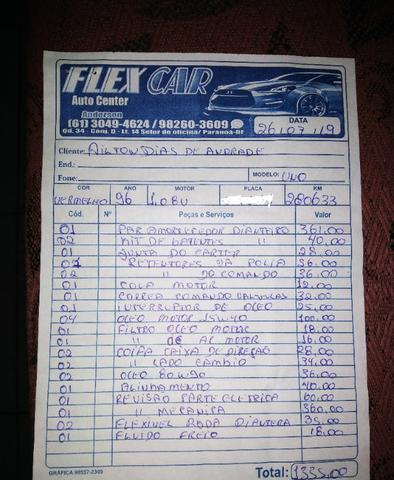 FLEX CAR
Auto Center
Anderson
(61) 3049-4624 / 98260-3609
Qd. 34 - Conj. D - Lt. 14 Setor de oficina/ Paranoá-DF
DATA
26/07/19
Cliente: AILTON DIAS DE ANDRADE
End.:
Fone: MODELO: UNO
COR ANO MOTOR PLACA KM
VERMELHO 96 1,0 8V 280633
Cód. Nº Peças e Serviços Valor
01 PAR AMORTECEDOR DIANTEIRO 361,00
02 KIT DE BATENTES " 40,00
01 JUNTA DO CARTER 28,00
01 RETENTORES DA POLIA 36,00
02 " DO COMANDO 36,00
01 COLA MOTOR 12,00
01 CORREA COMANDO VALVULAS 32,00
01 INTERRUPTOR DE OLEO 25,00
04 OLEO MOTOR 15W40 100,00
01 FILTRO OLEO MOTOR 18,00
01 " DE AR MOTOR 16,00
02 COIFA CAIXA DE DIREÇAO 28,00
02 " LADO CAMBIO 34,00
02 OLEO 80W90 36,00
01 ALINHAMENTO 40,00
01 REVISÃO PARTE ELETRICA 60,00
01 " MECANICA 360,00
02 FLEXIVEL RODA DIANTERA 35,00
01 FLUIDO FREIO 18,00
GRÁFICA 98557-2309 Total: 1335,00